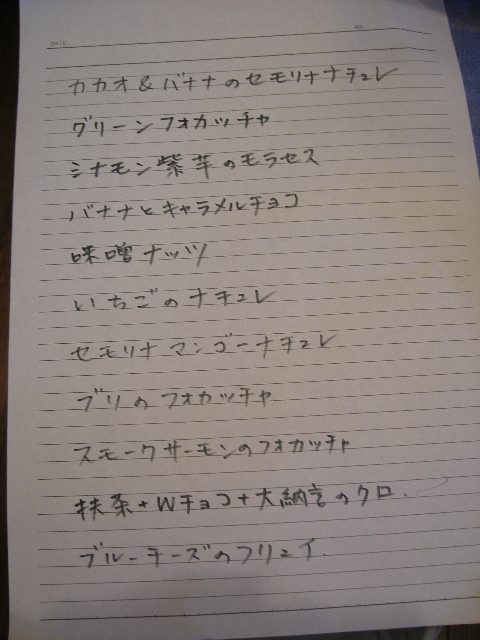 DATE
NO.
カカオ&バナナのセモリナナチュレ
グリーンフォカッチャ
シナモン紫芋のモラセス
バナナとキャラメルチョコ
味噌ナッツ
いちごのナチュレ
セモリナマンゴーナチュレ
ブリのフォカッチャ
スモークサーモンのフォカッチャ
抹茶+Wチョコ+大納言のクロ.
ブルーチーズのフリュイ.